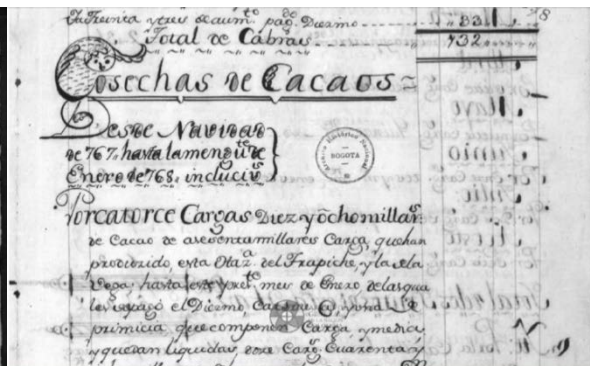 treinta y tres de aumto. pagdo. Diezmo 33
Total de Cabras 732
Cosechas de Cacaos
Desde Navidad
de 767 hasta la mengte. de
Enero de 768. inclucivs.
ARCHIVO HISTORICO NACIONAL
BOGOTA
Por catorce Cargas Diez y ocho millars.
de Cacao de a sesenta millares Carga, que han
producido, esta Haza. del Trapiche, y la
Vega, hasta este prete. mes de Enero de las qua
les el Diezmo, y una de
primicia, que componen Carga y media
y quedan liquidas Cargs. Cuarenta y